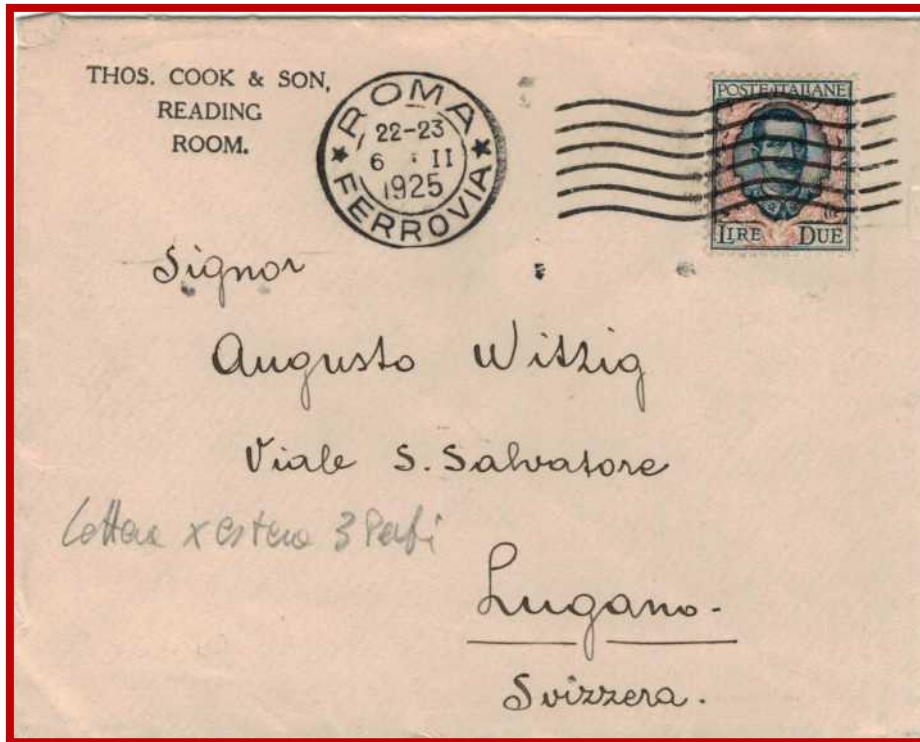 THOS. COOK & SON,
READING
ROOM.
ROMA
22-23
6 II
1925
FERROVIA
POSTE ITALIANE
LIRE DUE
Signor
Augusto Witzig
Viale S. Salvatore
Lettera x estero 3 Porti
Lugano.
Svizzera.